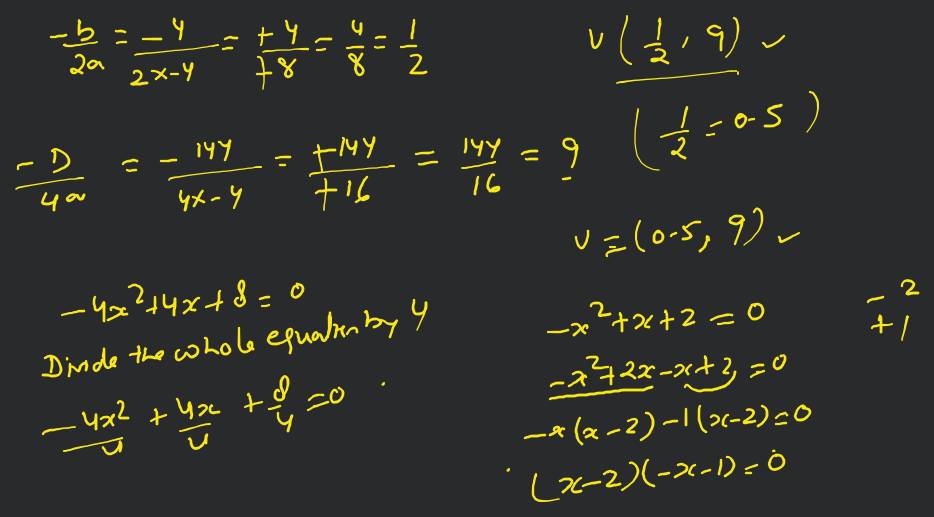 -b/2a = -4/2x-4 = +4/+8 = 4/8 = 1/2
v(1/2, 9) ✓
(1/2 = 0.5)
-D/4a = -144/4x-4 = +144/+16 = 144/16 = 9
v = (0.5, 9) ✓
-4x²+4x+8 = 0
Divide the whole equation by 4
-4x²/4 + 4x/4 + 8/4 = 0
-x²+x+2 = 0
-2
+1
-x²+2x-x+2 = 0
-x(x-2)-1(x-2) = 0
(x-2)(-x-1) = 0